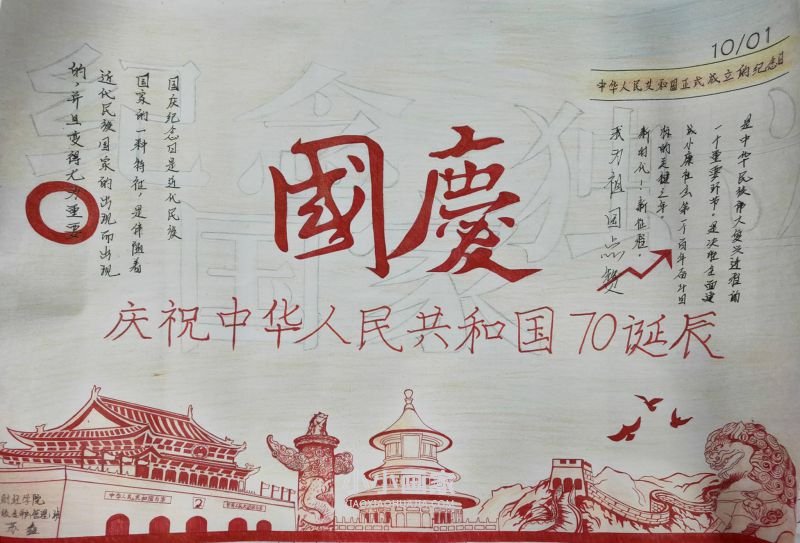 10/01
中华人民共和国正式成立的纪念日
国庆纪念日是近代民族
国家的一种特征,是伴随着
近代民族国家的出现而出现
的,并且变得尤为重要
國慶
是中华民族伟大复兴过程的
一个重要环节。是决胜全面建
成小康社会第一个百年奋斗目
标的关键之年
新时代!新征程。
我为祖国点赞
庆祝中华人民共和国70诞辰
纪念
独
国家
中华人民共和国万岁
财经学院